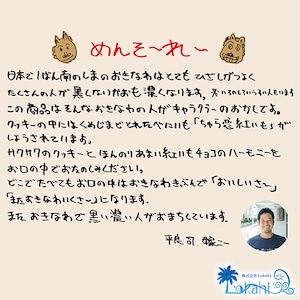 めんそ～れ～
日本で1ばん南のしまのおきなわはとても ひざしがつよく
たくさんの人が 黒くないかおも 濃くなります。
この商品はそんなおきなわの人がキャラクターのおかしです。
クッキーの中にはくめじまでとれた「ちゅら恋紅いも」が
しようされています。
サクサクのクッキーと ほんのりあまい紅いもチョコのハーモニーを
お口の中でおたのしみください。
どこでたべてもお口の中はおきなわきぶんで「おいしいさ～」
「またおきなわいくさ～」になります。
また おきなわで 黒い濃い人がおまちしています。
株式会社 Lokahi
Lokahi